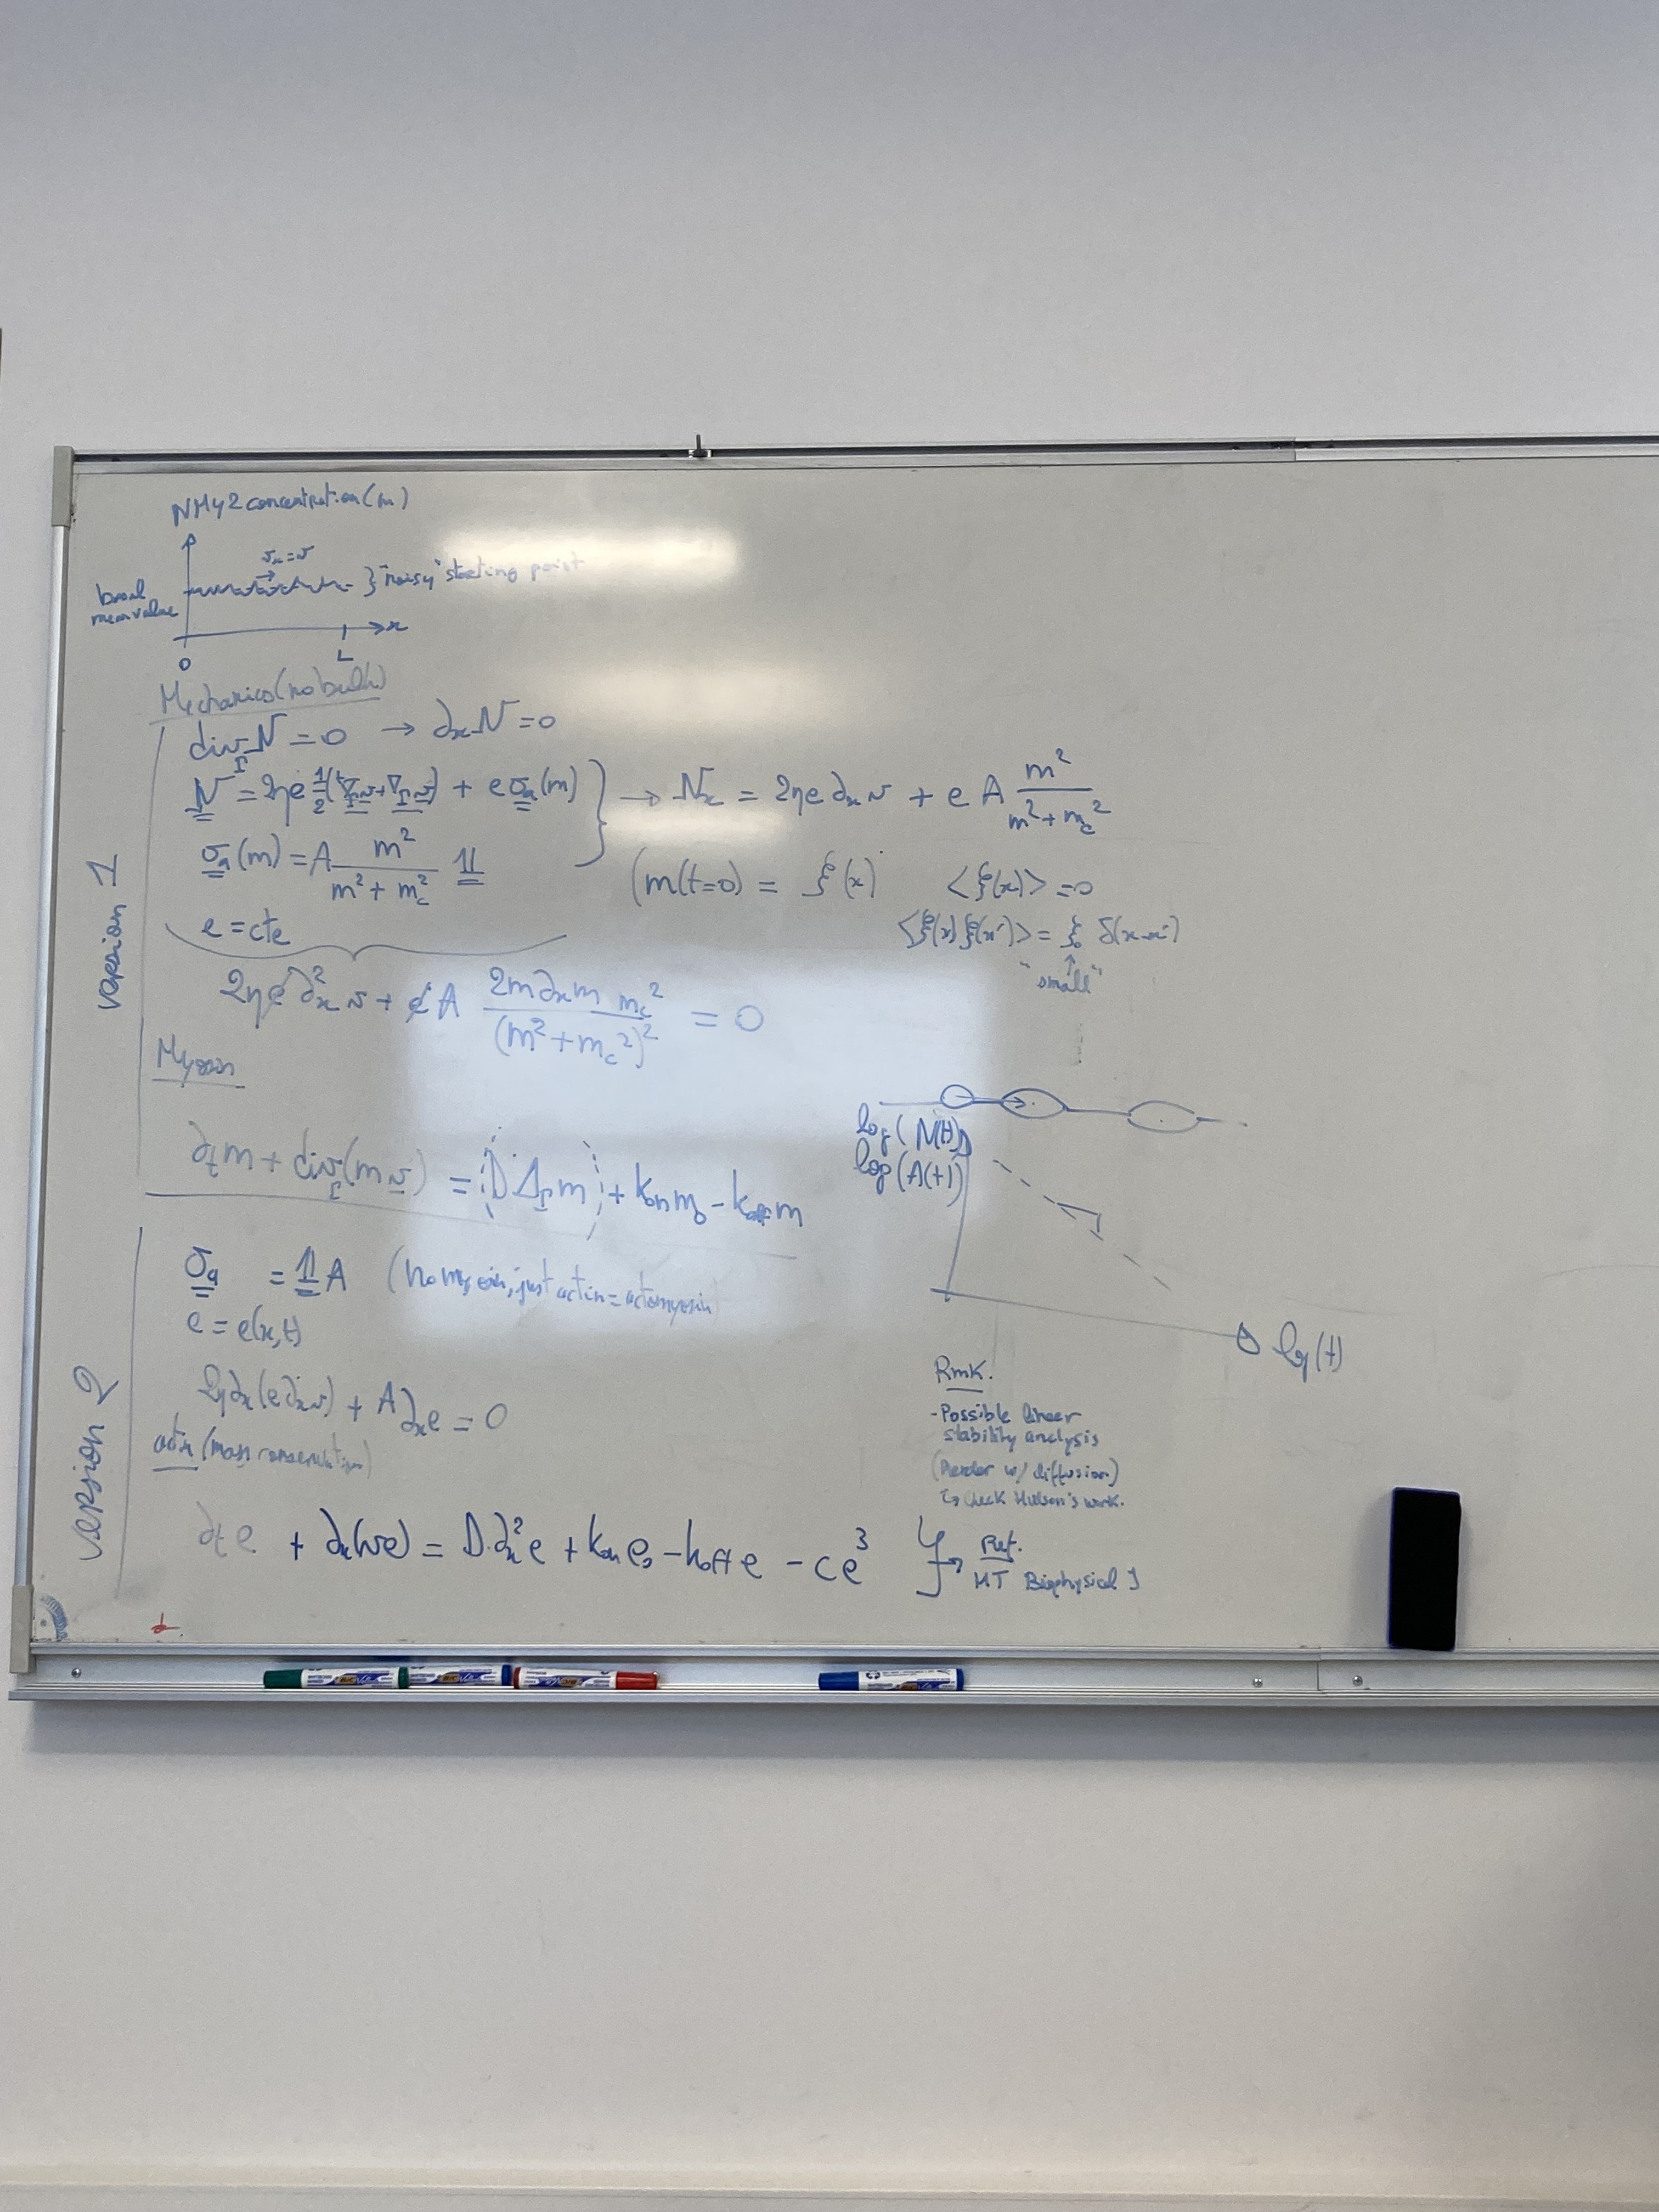 NMy2 concentration (m)
v_x = v
} "noisy" starting point
basal
mean value
x
0
L
Mechanics (no bulk)
div_Γ N = 0 → ∂x N = 0
N = 2ηe 1/2 (ᵗ∇_Γ v + ∇_Γ v) + e σa(m) } → Nx = 2ηe ∂x v + e A m²/(m² + mc²)
σa(m) = A m²/(m² + mc²) 𝟙
(m(t=0) = ξ(x) <ξ(x)> = 0
e = cte
<ξ(x) ξ(x')> = ξ₀ δ(x-x')
"small"
2ηe ∂x² v + e A 2m ∂x m mc²/(m² + mc²)² = 0
version 1
Myosin
∂t m + div_Γ(m v) = (D Δ_Γ m) + kon m₀ - koff m
log(N(t))
log(A(t))
log(t)
version 2
σa = 𝟙 A (no myosin, just actin = actomyosin)
e = e(x,t)
2η∂x(e∂x v) + A ∂x e = 0
actin (mass conservation)
∂t e + ∂x(v e) = D ∂x² e + kon e₀ - koff e - c e³
Ref.
HT Biophysical J
Rmk.
- Possible linear
stability analysis
w/ diffusion)
↳ check work.